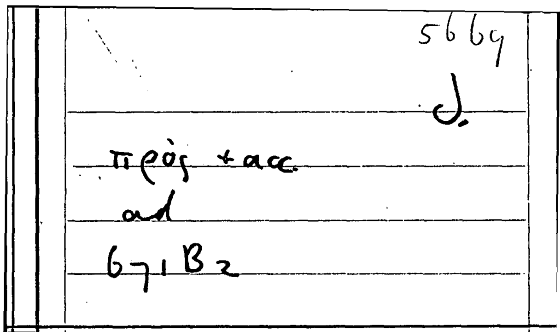 5669
J.
πρὸς + acc.
ad
671 B 2